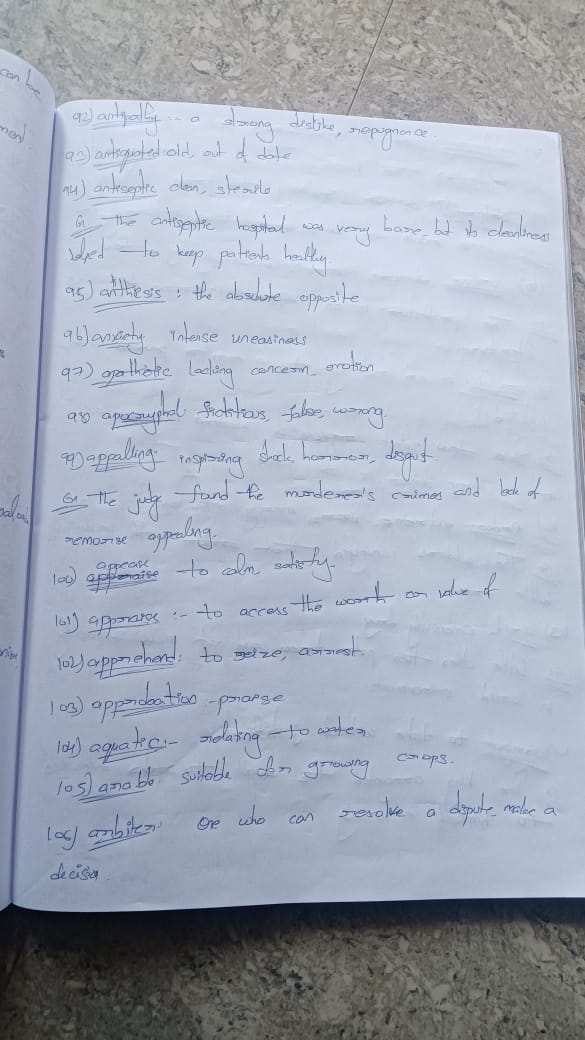 can be
ment.
92) antipathy :- a strong dislike, repugnance.
93) antiquated old, out of date
94) antiseptic clean, sterile
Ex The antiseptic hospital was very bare, but its cleanliness
helped to keep patients healthy
95) atithesis : the absolute opposite
96) anxiety intense uneasiness
97) apathetic lacking concern, emotion
98 apocryphal fictitious, false, wrong.
99) appalling: inspiring shock, horror, disgust.
Ex The judge found the murderer's crimes and lack of
remorse appealing.
appease
100) to calm, satisfy.
101) :- to access the worth or value of
102) apprehend: to seize, arrest.
103) approbation - praise
104) aquatic :- relating to water
105) arable. suitable for growing crops.
106) arbiter: One who can resolve a dispute, make a
decision.